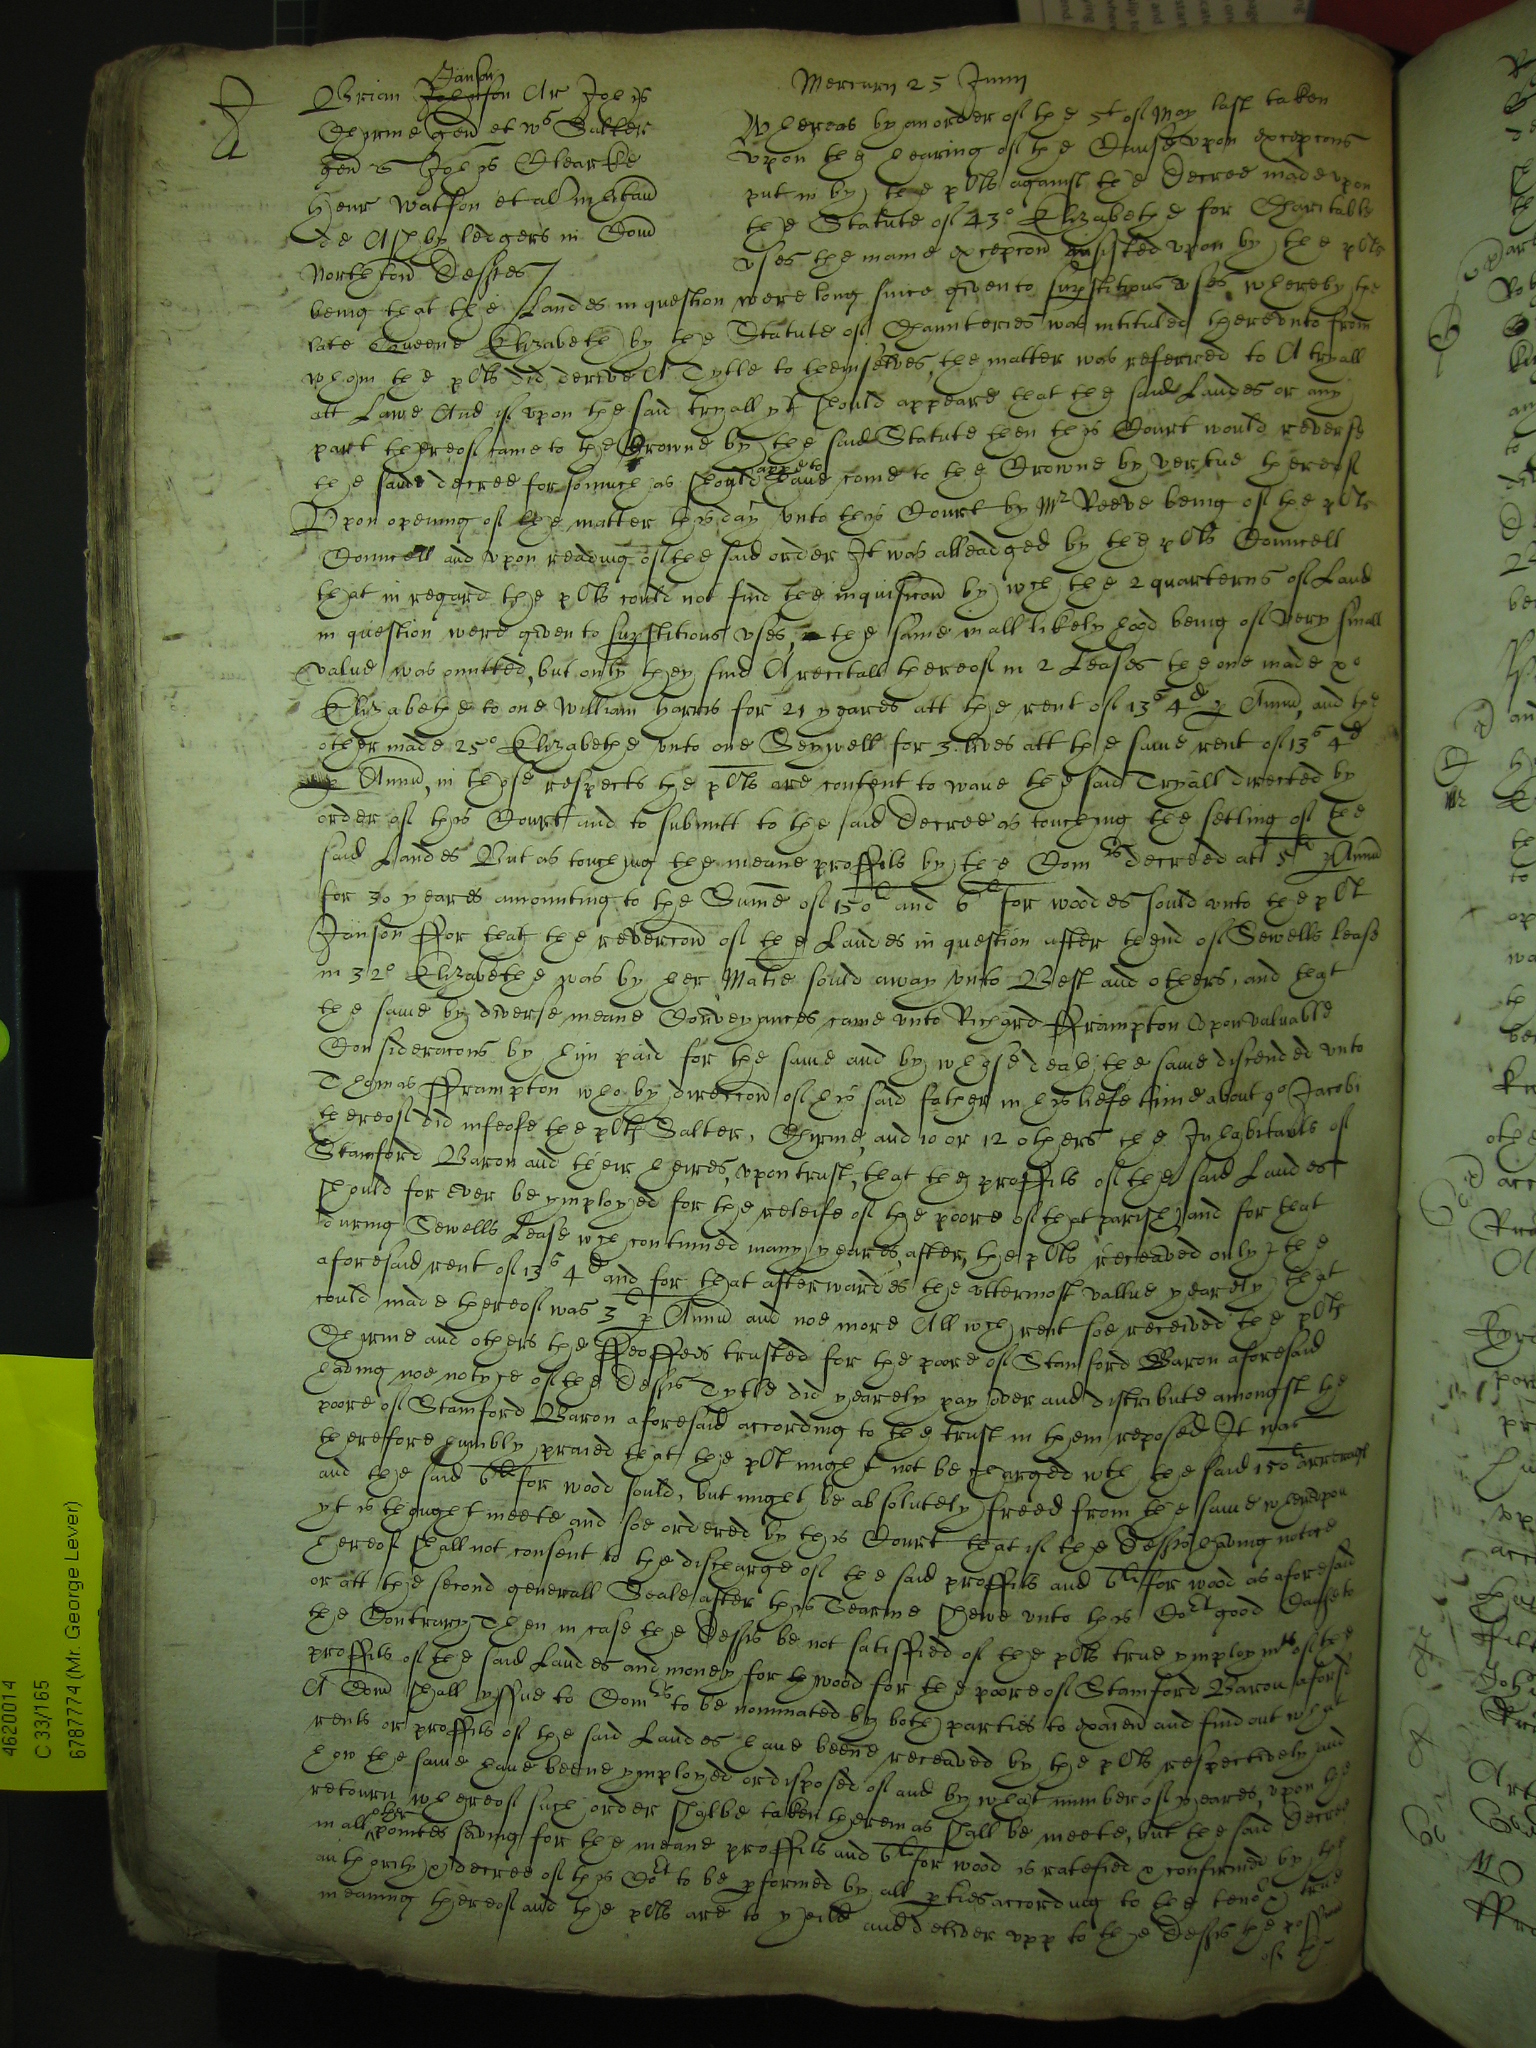 Mercurij 25 Junij
Brian Johnson Janson Ar Johes
Thirme gen et Ws Salter
gen & Johes Clearke
Henr Watson et al inhitan
de Ashby ledgers in Com
Northton Defftes
Whereas by an order of the 5t of May last taken
vpon the hearing of the Cause vpon excepcons
put in by the plts against the Decree made vpon
the Statute of 43o Elizabethe for Charitable
vses the maine excepcon insisted vpon by the plts
being that the Landes in question were long since given to supstitious vses whereby the
late Queene Elizabeth by the Statute of Chaunteries was intituled therevnto from
whom the plts did derive A Tytle to themselves, the matter was referred to A tryall
att Lawe And if vpon the said tryall yt should appeare that the said Landes or any
part thereof came to the Crowne by the said Statute then this Court would reverse
the said decree for somuch as should appe to haue come to the Crowne by vertue thereof
Vpon opening of the matter this day vnto this Court by Mr Reeve being of the plts
Councell and vpon reading of the said order It was alleadged by the plts Councell
that in regard the plts could not find the inquisicon by wch the 2 quarterns of Land
in question were given to supstitious vses, the same in all likelyhood being of very small
value was omitted, but only they find A recitall thereof in 2 Leases the one made xo
Elizabethe to one William Harris for 21 yeares att the rent of 13s 4d p Annu, and the
other made 25o Elizabethe vnto one Seywell for 3 lives att the same rent of 13s 4d
p Annu, in those respects the plts are content to waue the said Tryall directed by
order of this Court and to submitt to the said Decree as touching the setling of the
said Landes But as touching the meane proffits by the Comrs decreed att 5li p Annu
for 30 yeares amounting to the Sume of 150li and 6li for woodes sould vnto the plt
Janson For that the revercon of the Landes in question after thend of Sewells lease
in 32th Elizabethe was by her Matie sould away vnto Best and others, and that
the same by diverse meane Conveyances came vnto Richard Frampton vpon valuable
Consideracons by him paid for the same and by whose death the same discended vnto
Thomas Frampton who by direccon of his said father in his liefe time about 9o Jacobi
thereof did infeofe the plts Salter, Thirme, and 10 or 12 others the Inhabitants of
Stamford Baron and their heires, vpon trust, that the proffits of the said Landes
should for ever be ymployed for the releife of the poore of that parish, and for that
during Sewells Lease wch continued many yeares after, the plts receaved only the
aforesaid rent of 13s 4d and for that afterwardes the vttermost vallue yearely that
could made thereof was 3li p Annu and noe more All wch rent soe received the plts
Thirme and others the Feoffees trusted for the poore of Stamford Baron aforesaid
having noe notyce of the Defts Tytle did yearely pay over and distribute amongst the
poore of Stamford Baron aforesaid according to the trust in them reposed It was
therefore humbly praied that the plt might not be charged wth the said 150li arrerages
and the said 6li for wood sould, but might be absolutely freed from the same wherevpon
yt is thought meete and soe ordered by this Court that if the Defts having notice
hereof shall not consent to the discharge of the said proffits and 6li for wood as aforesaid
or att the second generall Seale after this Tearme shewe vnto this Cort good Cause to
the Contrary Then in case the Defts be not satisfied of the plts true ymploymt of the
proffits of the said Landes and money for the wood for the poore of Stamford Baron aforsd
A Com shall yssue to Comrs to be nominated by both parties to examen and find out what
rents or proffits of the said Landes haue beene receaved by the plts respectively and
how the same haue beene ymployed or disposed of and by what number of yeares, vpon the
retourn whereof such order shalbe taken therein as shall be meete, but the said Decree
in all other pointes saving for the meane proffits and 6li for wood is ratefied & confirmed by the
authority & decree of this Cort to be pformed by all pties according to the tenor & true
meaning thereof and the plts are to yeild and deliver vpp to the Defts the possion
of the
4620014
C 33/1165
6787774 (Mr. George Lever)